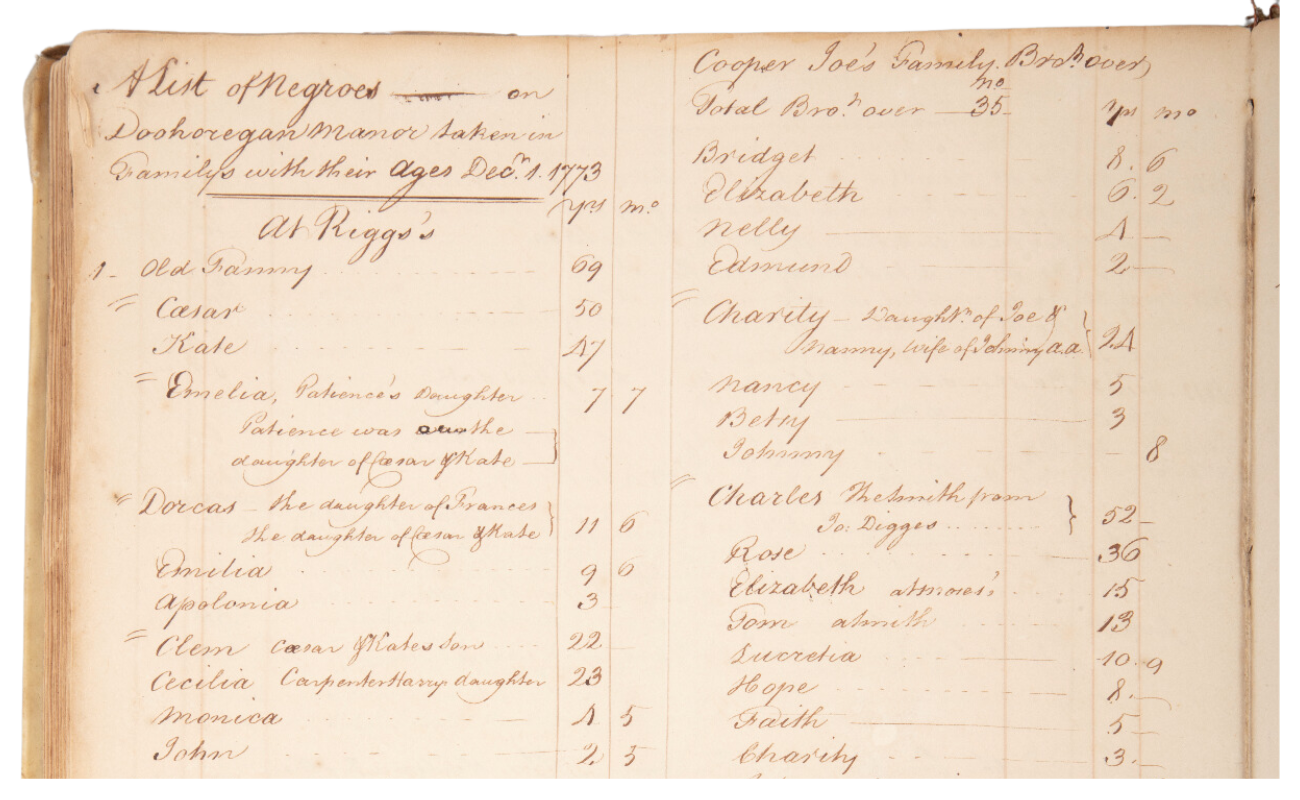 A List of Negroes on
Doohoregan Manor taken in
Familys with their Ages Decr. 1. 1773
yrs mo
At Riggs's
1 - Old Fanny 69
" Cæsar 50
Kate 47
" Emelia, Patience's Daughter 7 7
Patience was the
daughter of Cæsar & Kate
" Dorcas - the daughter of Frances
the daughter of Cæsar & Kate 11 6
Emilia 9 6
Apolonia 3
" Clem Cæsar & Kates Son 22
Cecilia Carpenter Harrys daughter 23
Monica 4 5
John 2 5
Cooper Joe's Family Brot. over
mo
Total Brot. over 35 yrs mo
Bridget 8. 6
Elizabeth 6. 2
Nelly 4
Edmund 2
" Charity - Daughtr. of Joe &
Nanny, wife of Johnny a.a. 24
Nancy 5
Betsy 3
Johnny 8
" Charles The Smith from
Jo: Digges 52
Rose 36
Elizabeth at Moses's 15
Tom a Smith 13
Lucretia 10. 9
Hope 8.
Faith 5
Charity 3.